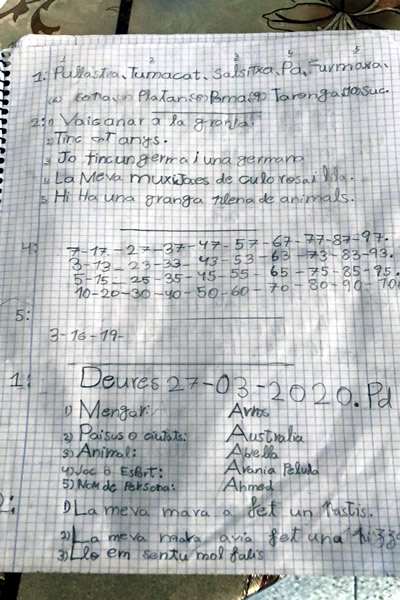 1 2 3 4 5
1: Pullastra, Tumacat, Salsitxa, Pa, Furmaxa,
Platan Poma Taronga Suc.
2: 1) Vaisanar a la granja.
2 Tinc 7 anys.
3 Jo tinc un germa i una germana
4 La Meva muxijaes de culo rosa i lila.
5 Hi Ha una granga plena de animals.
4: 7-17-27-37-47-57-67-77-87-97.
3-13-23-33-43-53-63-73-83-93.
5-15-25-35-45-55-65-75-85-95.
10-20-30-40-50-60-70-80-90-100
5:
3-16-19-
1: Deures 27-03-2020. Pd
1) Mengar: Arros
2) Paisus o ciutats: Australia
3) Animal: Abella
4) Joc o Esport: Arania Peluda
5) Nom de Persona: Ahmed
2: 1) La meva mara a fet un Pastis.
2) La meva mara avia fet una
3) Llo em sentu mol falis